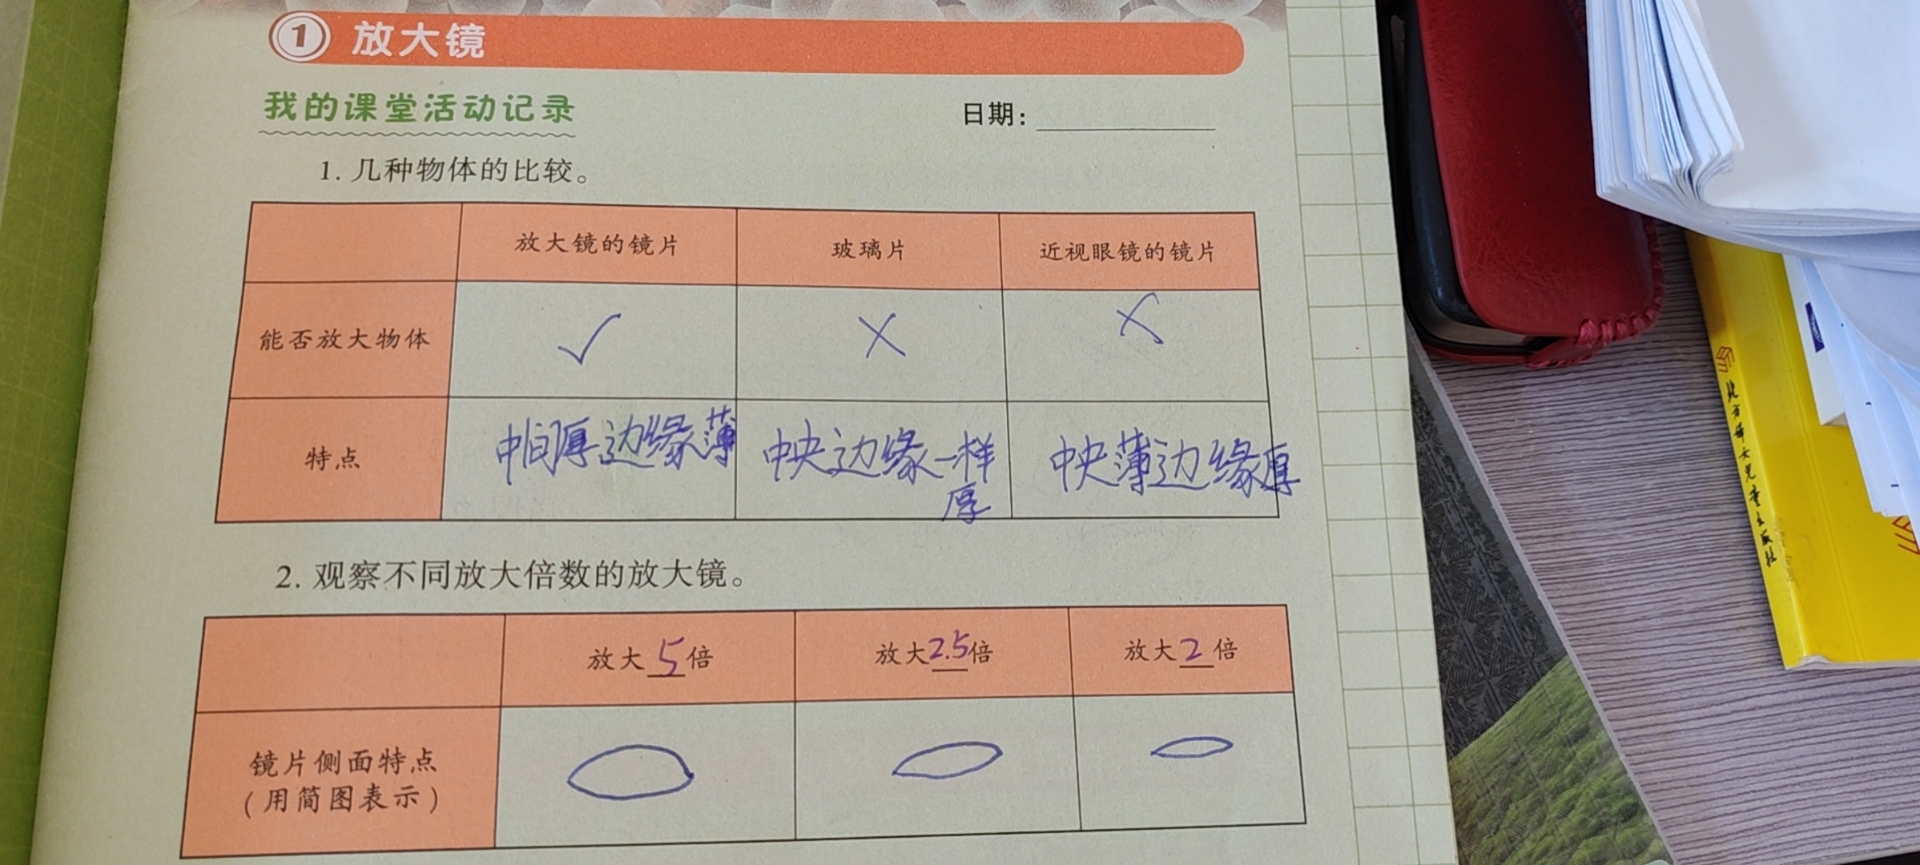 1 放大镜
我的课堂活动记录
日期：
1. 几种物体的比较。
放大镜的镜片 玻璃片 近视眼镜的镜片
能否放大物体 ✓ × ×
特点 中间厚边缘薄 中央边缘一样厚 中央薄边缘厚
2. 观察不同放大倍数的放大镜。
放大5倍 放大2.5倍 放大2倍
镜片侧面特点
(用简图表示)
北方妇女儿童出版社